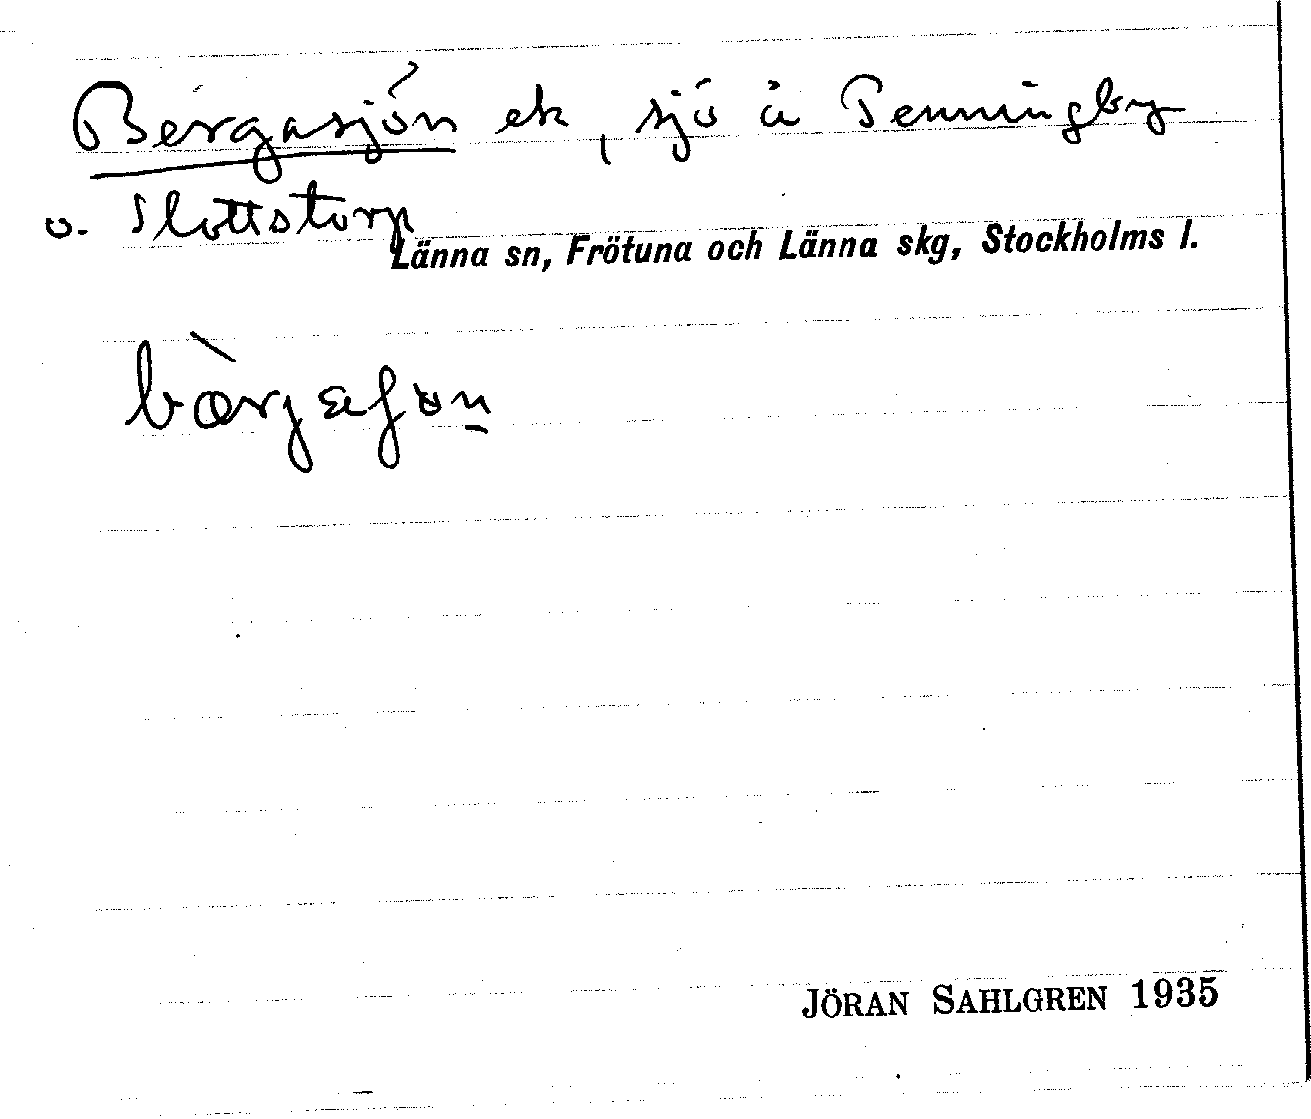 Bergasjön ek, sjö å Penningby
o. Slottstorp
Länna sn, Frötuna och Länna skg, Stockholms l.
JÖRAN SAHLGREN 1935